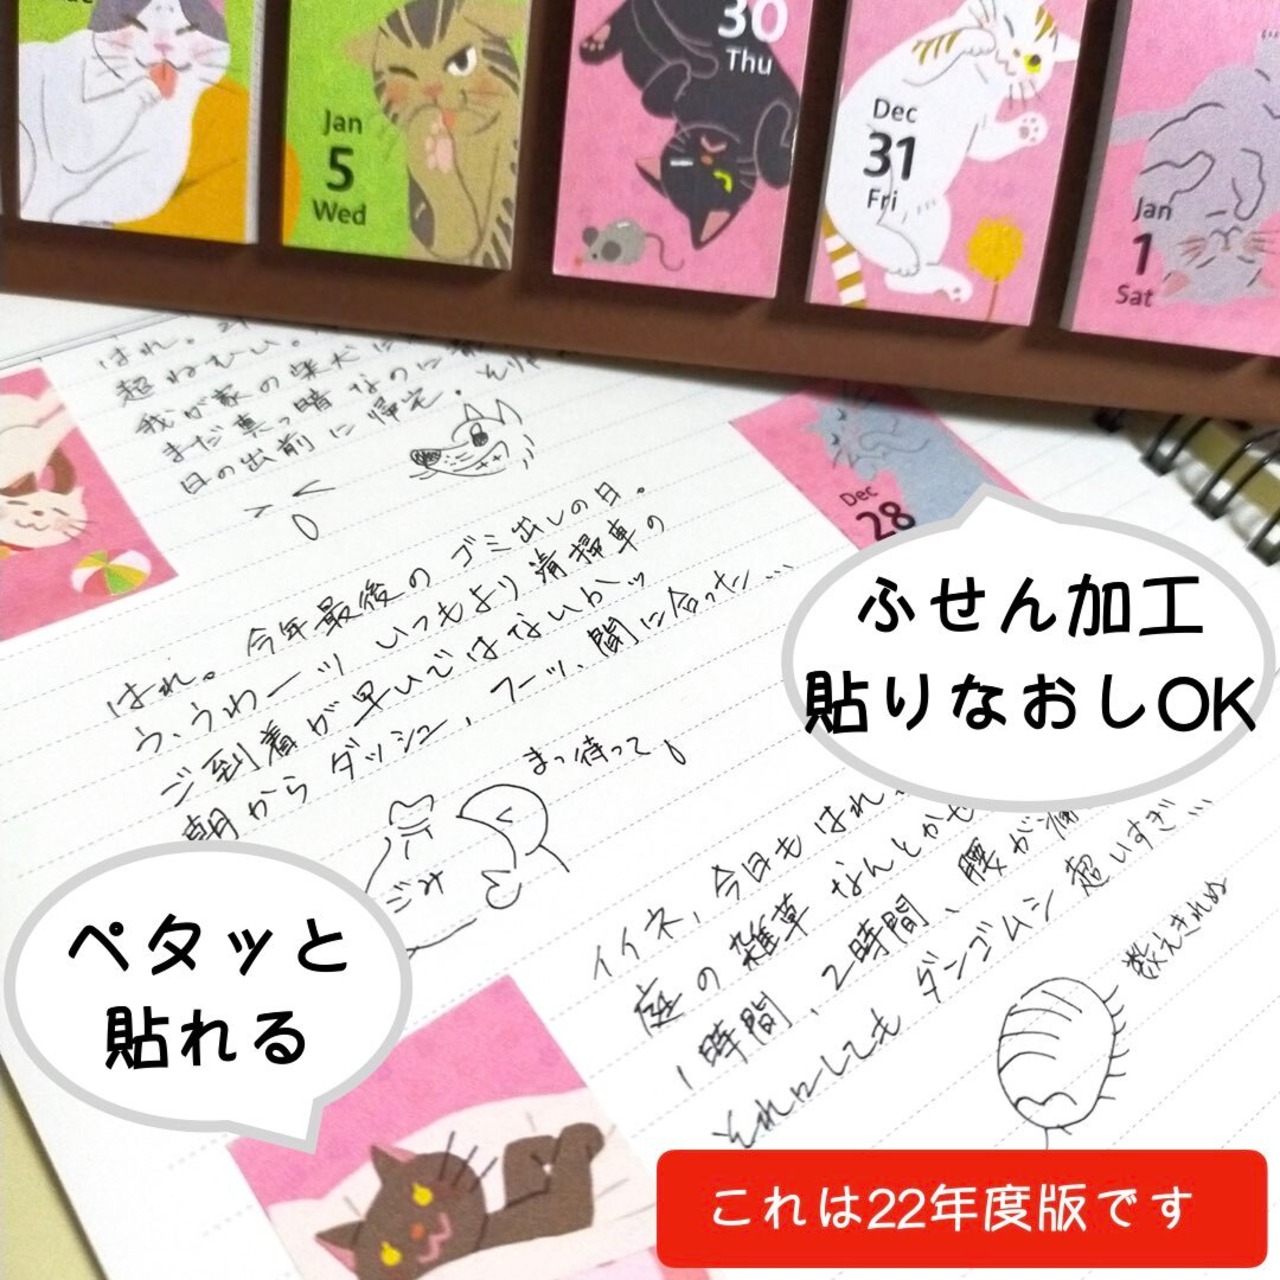 Jan
5
Wed
30
Thu
Dec
31
Fri
Jan
1
Sat
はれ。
超ねむい。
我が家の柴犬に
まだ真っ暗なのに
日の出前に帰宅。
Dec
28
ふせん加工
貼りなおしOK
はれ。今年最後のゴミ出しの日。
う、うわーッ いつもより清掃車の
ご到着が早いではないかッ
朝からダッシュ、フーッ、間に合った…
まっ待って
ごみ
ペタッと
貼れる
イイネ、今日もはれ
庭の雑草なんとかせ
1時間、2時間、腰が痛
それにしてもダンゴムシ超いすぎ…
数えきれぬ
これは22年度版です